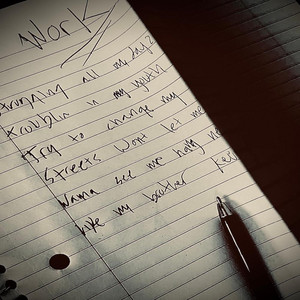 Work
Struggling all my days
Troublin in my youth
Try to change my
Streets wont let me
Wanna see me hang
like my brother